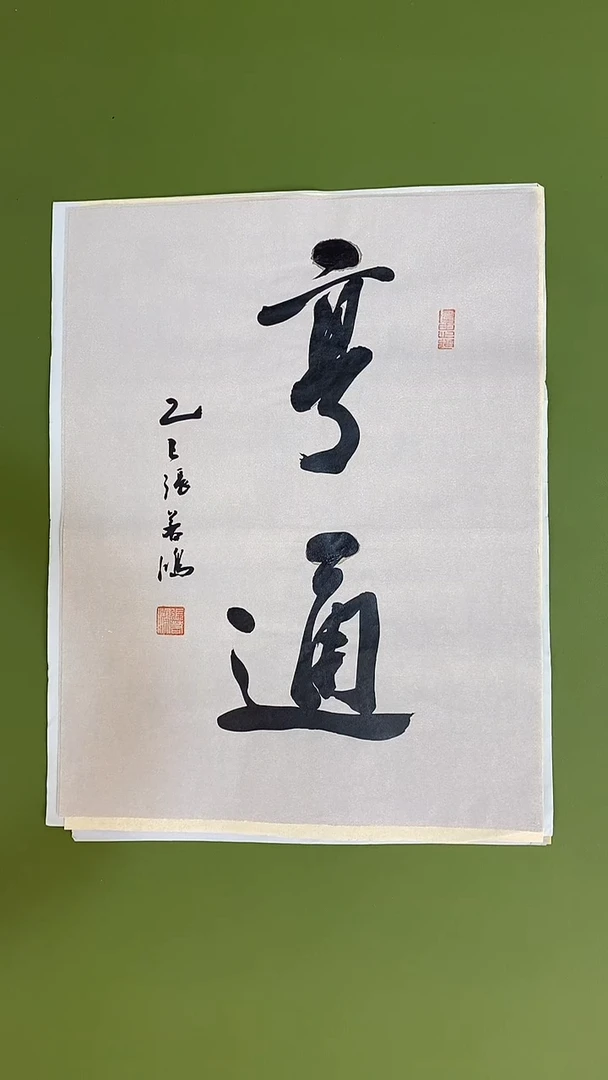 亨通
乙巳張若鴻